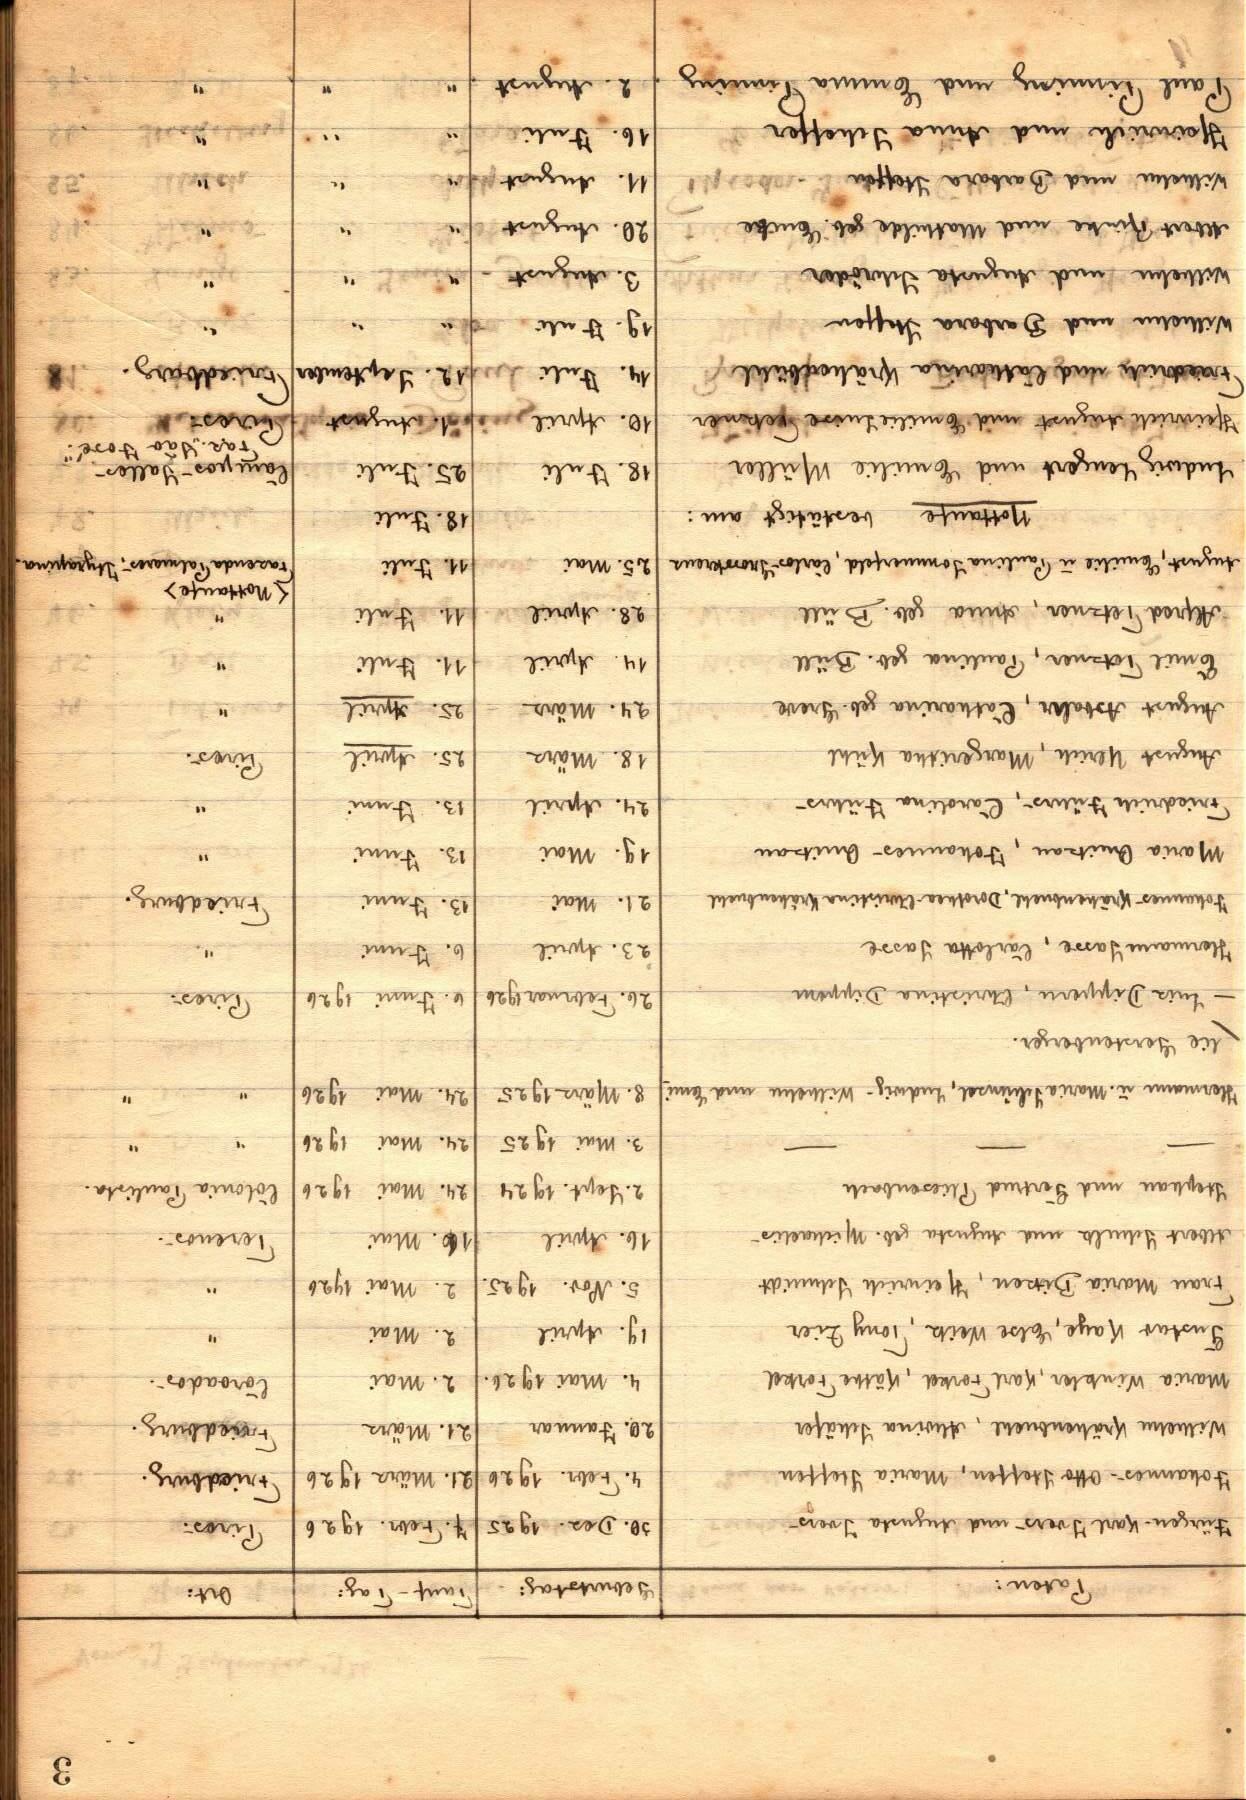 3
Paten: Geburtstag: Tauf-Tag: Ort:
Jürgen-Karl Ivers und Augusta Ivers 30. Dez. 1925 7. Febr. 1926 Pires.
Johannes-Otto Steffen, Maria Steffen 4. Febr. 1926 21. März 1926 Friedburg.
Wilhelm Krähenbuehl, Alwina Schäfer 20. Januar 21. März Friedburg.
Maria Winkler, Karl Forkel, Käthe Forkel 4. Mai 1926. 2. Mai Coroados.
Gustav Kaye, Else Weitz, Tony Zier 19. April 2. Mai "
Frau Maria Bitzen, Heinrich Schmidt 5. Nov. 1925. 2. Mai 1926 "
Albert Schulz und Augusta geb. Michaelis 16. April 16. Mai Terenos.
Stephan und Gertrud Pliesenbach 2. Sept. 1924 24. Mai 1926 Colonia Paulista.
— — — 3. Mai 1925 24. Mai 1926 " "
Hermann u. Maria Schünzel, Ludwig-Wilhelm und Emi- 8. März 1925 24. Mai 1926 " "
lie Gerstenberger.
— Luiz Dippern, Christina Dippern 26. Februar 1926 6. Juni 1926 Pires.
Hermann Jasse, Carlotta Jasse 23. April 6. Juni "
Johannes Krähenbuehl, Dorothea-Christina Krähenbuehl 21. Mai 13. Juni Friedburg.
Maria Quitzau, Johannes Quitzau 19. Mai 13. Juni "
Friedrich Jührs, Carolina Jührs 24. April 13. Juni "
August Ulrich, Margeritha Kühl 18. März 25. April Pires.
August Asbahr, Catharina geb. Greve 24. März 25. April "
Emil Tetzner, Paulina geb. Büll 14. April 11. Juli "
Alfred Tetzner, Anna geb. Büll 28. April 11. Juli "
<Nottaufe>
August, Emilie u Paulina Sommerfeld, Carlos Grosskreuz 25. Mai 11. Juli Fazenda Palmares, Ityrapina.
Nottaufe bestätigt am: 18. Juli
Ludwig Lengert und Emilie Müller 18. Juli 25. Juli Campos-Salles
Faz. "São José."
Heinrich August und Emilie Luise Tetzner 10. April 1. August Pires.
Friedrich und Catharina Krähenbühl 14. Juli 12. September Friedburg.
Wilhelm und Barbara Steffen 19. Juli " " "
Wilhelm und Augusta Schröder 3. August " " "
Albert Rinke und Mathilde geb. Emcke 20. August " " "
Wilhelm und Barbara Steffen 11. August " " "
Heinrich und Anna Scheffer 16. Juli " " "
Paul Pinning und Emma Pinning 2. August " " "